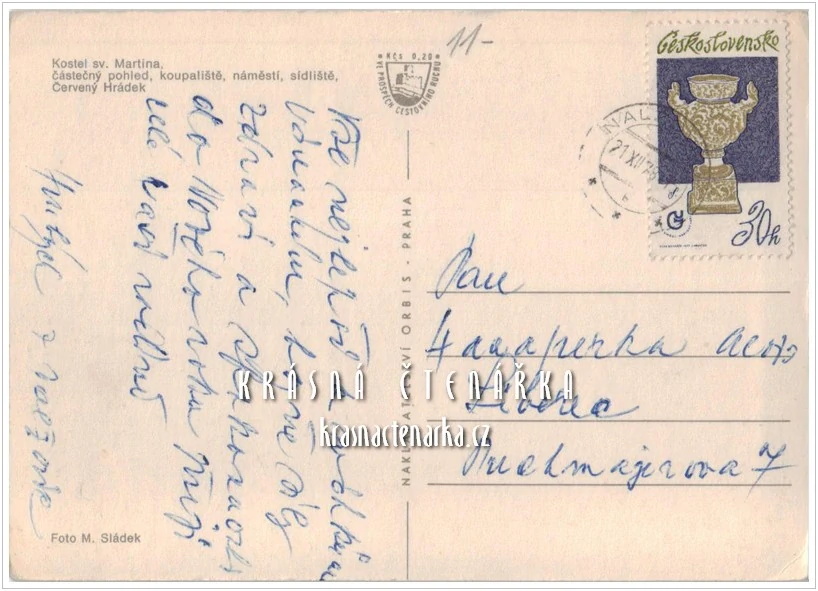 Kostel sv. Martina,
částečný pohled, koupaliště, náměstí, sídliště,
Červený Hrádek
KČS 0,20
VE PROSPĚCH CESTOVNÍHO RUCHU
11-
Československo
30h
21.XII.76
Vše nejlepší k
Vánocům, hodně síly
zdraví a spokojenosti
do Nového roku přejí
celé Vaší rodině
z
NAKLADATELSTVÍ ORBIS - PRAHA
Pan
Liberec
Puchmajerova 7
KRÁSNÁ ČTENÁŘKA
krasnactenarka.cz
Foto M. Sládek